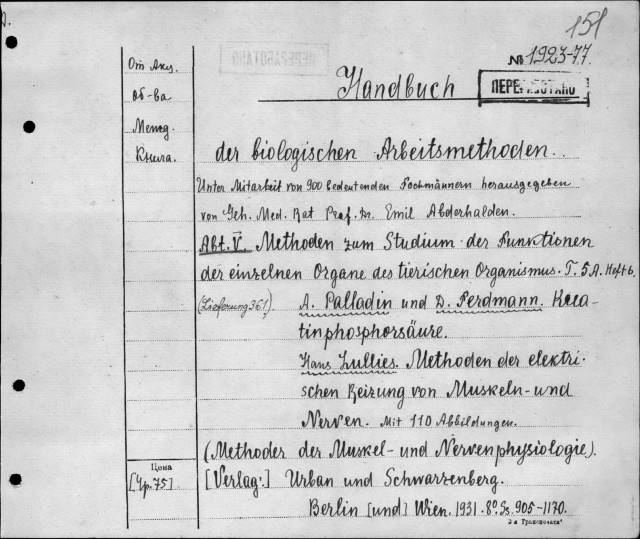 151
№ 1923-77.
ПЕРЕРАБОТАНО
ПЕРЕРАБОТАНО
Handbuch
От Акц.
об-ва
Межд.
Книга.
der biologischen Arbeitsmethoden.
Unter Mitarbeit von 900 bedeutenden Fachmännern herausgegeben
von Geh. Med. Rat Prof. Dr. Emil Abderhalden.
Abt. V. Methoden zum Studium der Funktionen
der einzelnen Organe des tierischen Organismus. T. 5 A. Heft 6.
(Lieferung 361). A. Palladin und D. Ferdmann. Krea-
tinphosphorsäure.
Hans Lullies. Methoden der elektri-
schen Reizung von Muskeln- und
Nerven. Mit 110 Abbildungen.
(Methoder der Muskel- und Nervenphysiologie).
Цена
[4р.75]
[Verlag:] Urban und Schwarzenberg.
Berlin [und] Wien. 1931. 8º. Ss. 905-1170.